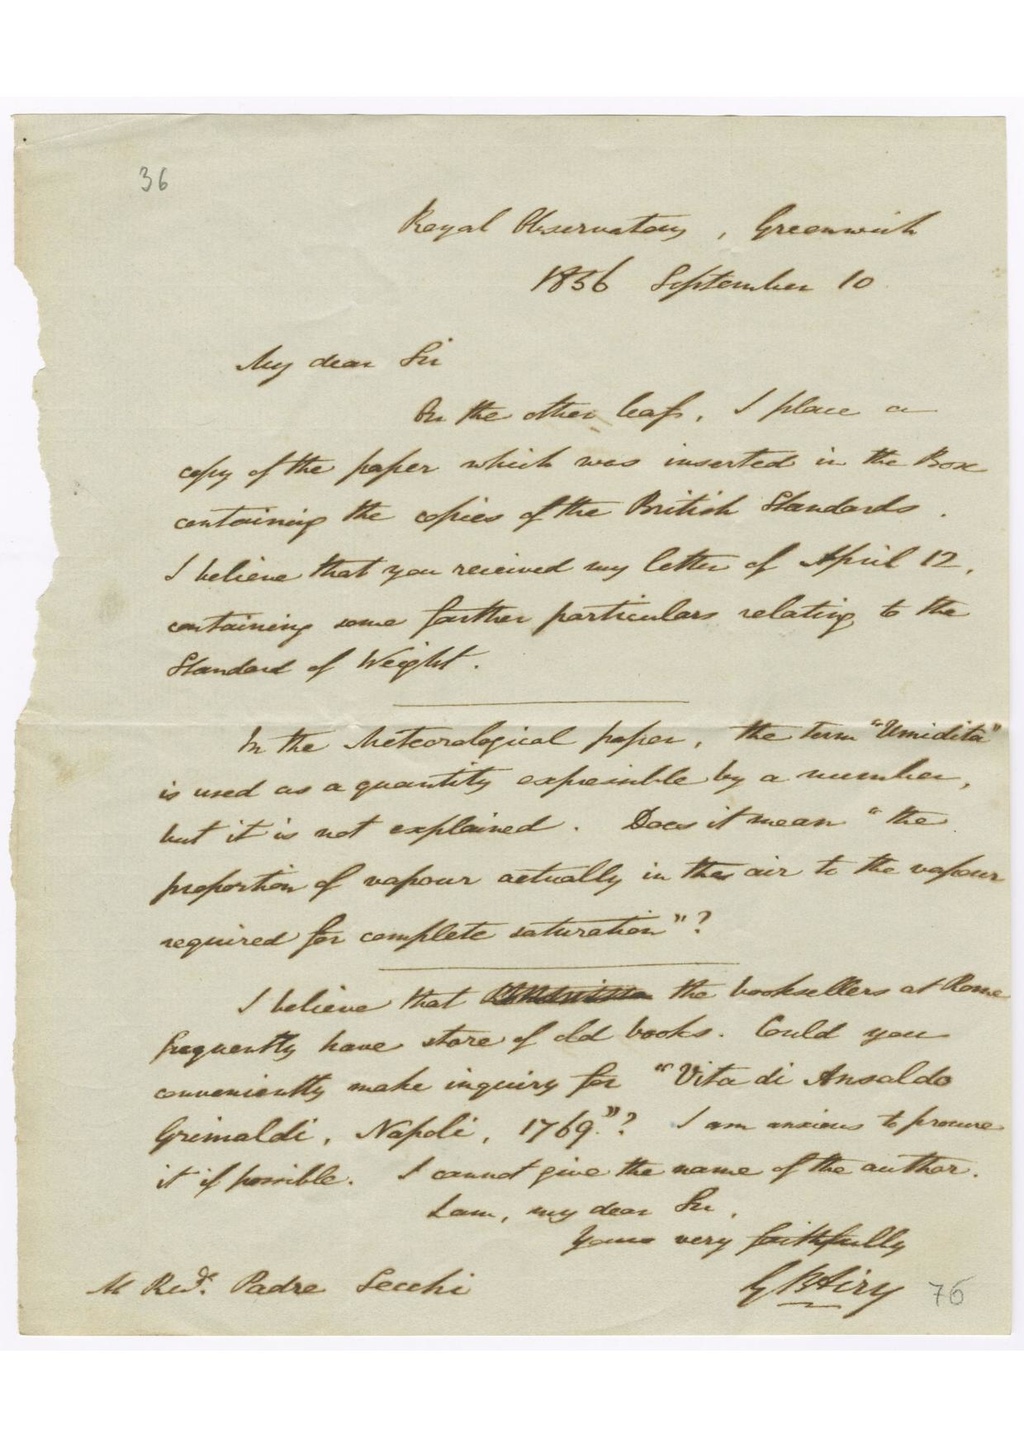 36
Royal Observatory, Greenwich
1856 September 10
My dear Sir
On the other leaf, I place a
copy of the paper which was inserted in the Box
containing the copies of the British Standards.
I believe that you received my letter of April 12,
containing some farther particulars relating to the
Standard of Weight.
In the Meteorological paper, the term "Umidità"
is used as a quantity expressible by a number,
but it is not explained. Does it mean "the
proportion of vapour actually in the air to the vapour
required for complete saturation"?
I believe that the booksellers at Rome
frequently have store of old books. Could you
conveniently make inquiry for "Vita di Ansaldo
Grimaldi, Napoli, 1769"? I am anxious to procure
it if possible. I cannot give the name of the author.
I am, my dear Sir,
Yours very faithfully
G B Airy
M Revd. Padre Secchi
76